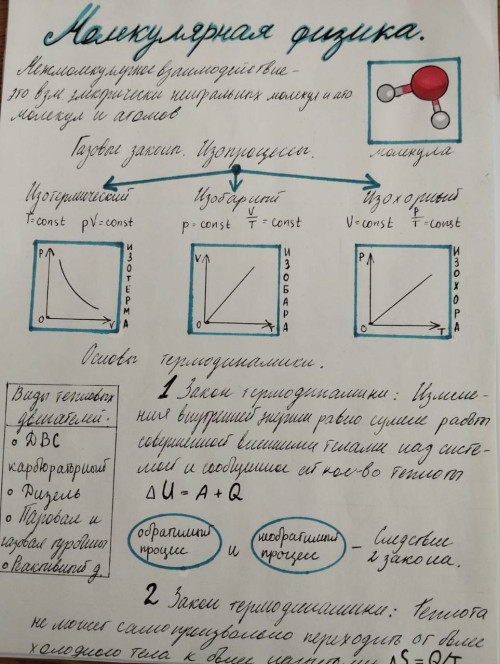 Молекулярная физика.
Межмолекулярное взаимодействие -
это взм электрически нейтральных молекул и
молекул и атомов
молекула
Газовые законы. Изопроцессы.
Изотермический
T=const pV=const
Изобарный
p=const V/T=const
Изохорный
V=const P/T=const
P
0
V
ИЗОТЕРМА
V
0
T
ИЗОБАРА
P
0
T
ИЗОХОРА
Основы термодинамики.
Виды тепловых
двигателей.
ДВС
карбюраторный
Дизель
Паровая и
газовая турбины
Реактивный д.
1 Закон термодинамики: Измене-
ния внутренней энергии равно сумме работы
совершённой внешними телами над систе-
мой и сообщенное ей кол-во теплоты
ΔU = A + Q
обратимый
процесс
и
необратимый
процесс
- Следствие
2 закона.
2 Закон термодинамики: Теплота
не может самопроизвольно переходить от более
холодного тела к более ΔS = Q/T